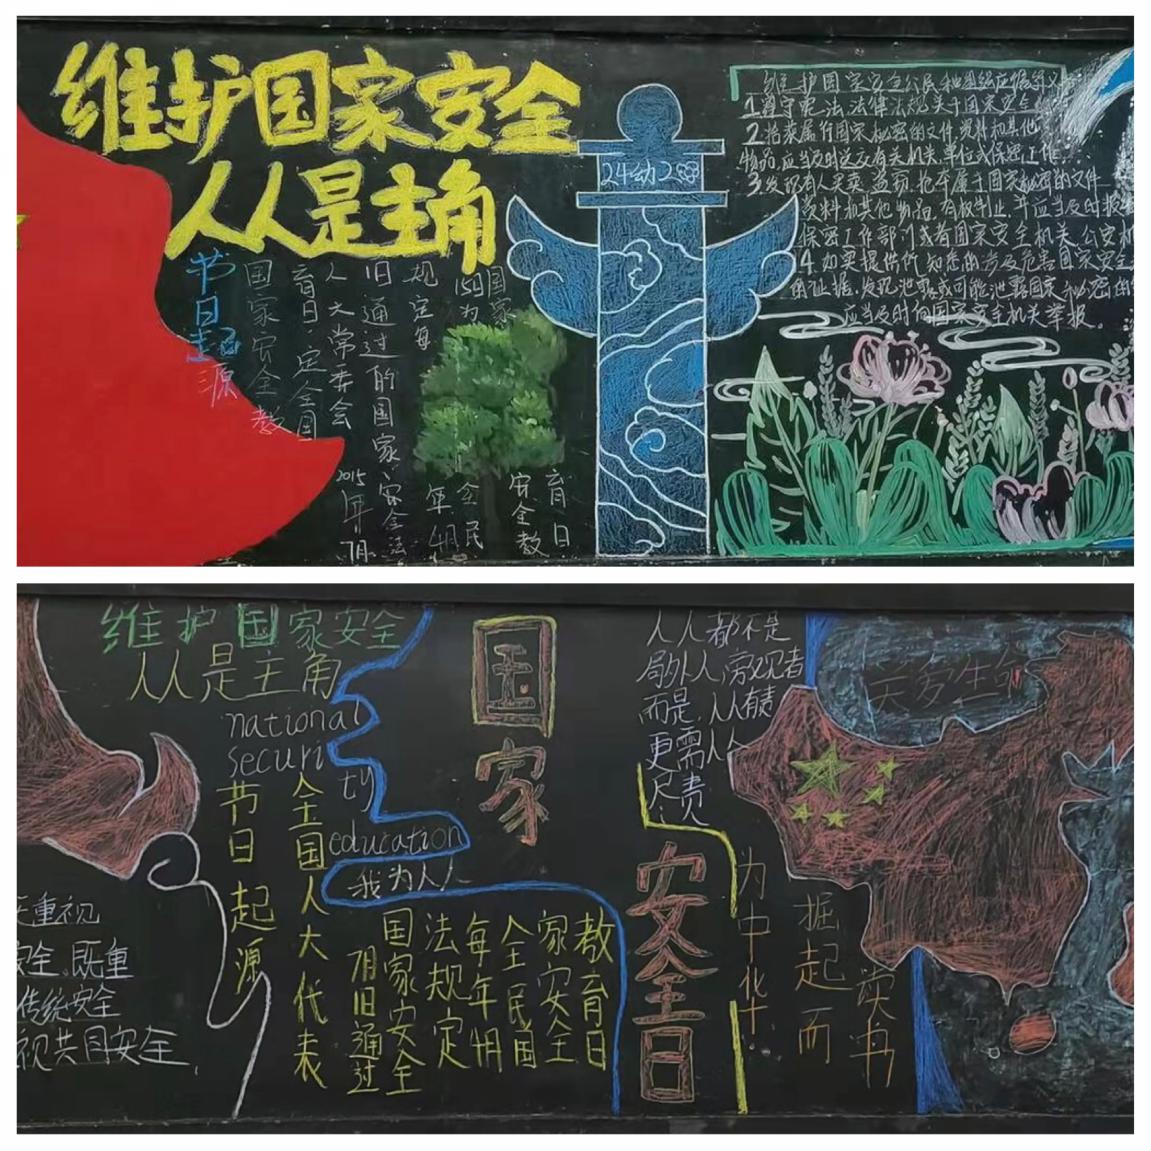 维护国家安全
人人是主角
24动2
节日起源
国家安全教
育日,定全国
人大常委会
2015年7月
1日通过的国家安全法
规定每年4月
15日为全民
国家
安全教
育日
维护国家安全公民和组织应履
1.遵守宪法法律法规关于国家安全
2.拾获属于国家秘密的文件、资料和其他
物品,应当及时送交有关机关、单位或保密工作
3.发现有人买卖、盗窃、抢夺属于国家秘密的文件
资料和其他物品,有权制止,并应当及时报
保密工作部门或者国家安全机关、公安机
4.如实提供所知悉的涉及危害国家安全
的证据,发现泄露或可能泄露国家秘密的
应当及时向国家安全机关举报。
维护国家安全
人人是主角
national
securi
ty
education
我为人人
节日起源
全国人大代表
7月1日通过
国家安全
法规定
每年4月
全民国
家安全
教育日
国家
安全日
人人都不是
局外人旁观者
而是人人有责
更需人人
尽责
关爱生命
为中化
掘起而
读书
重视
安全,既重
传统安全
视共同安全